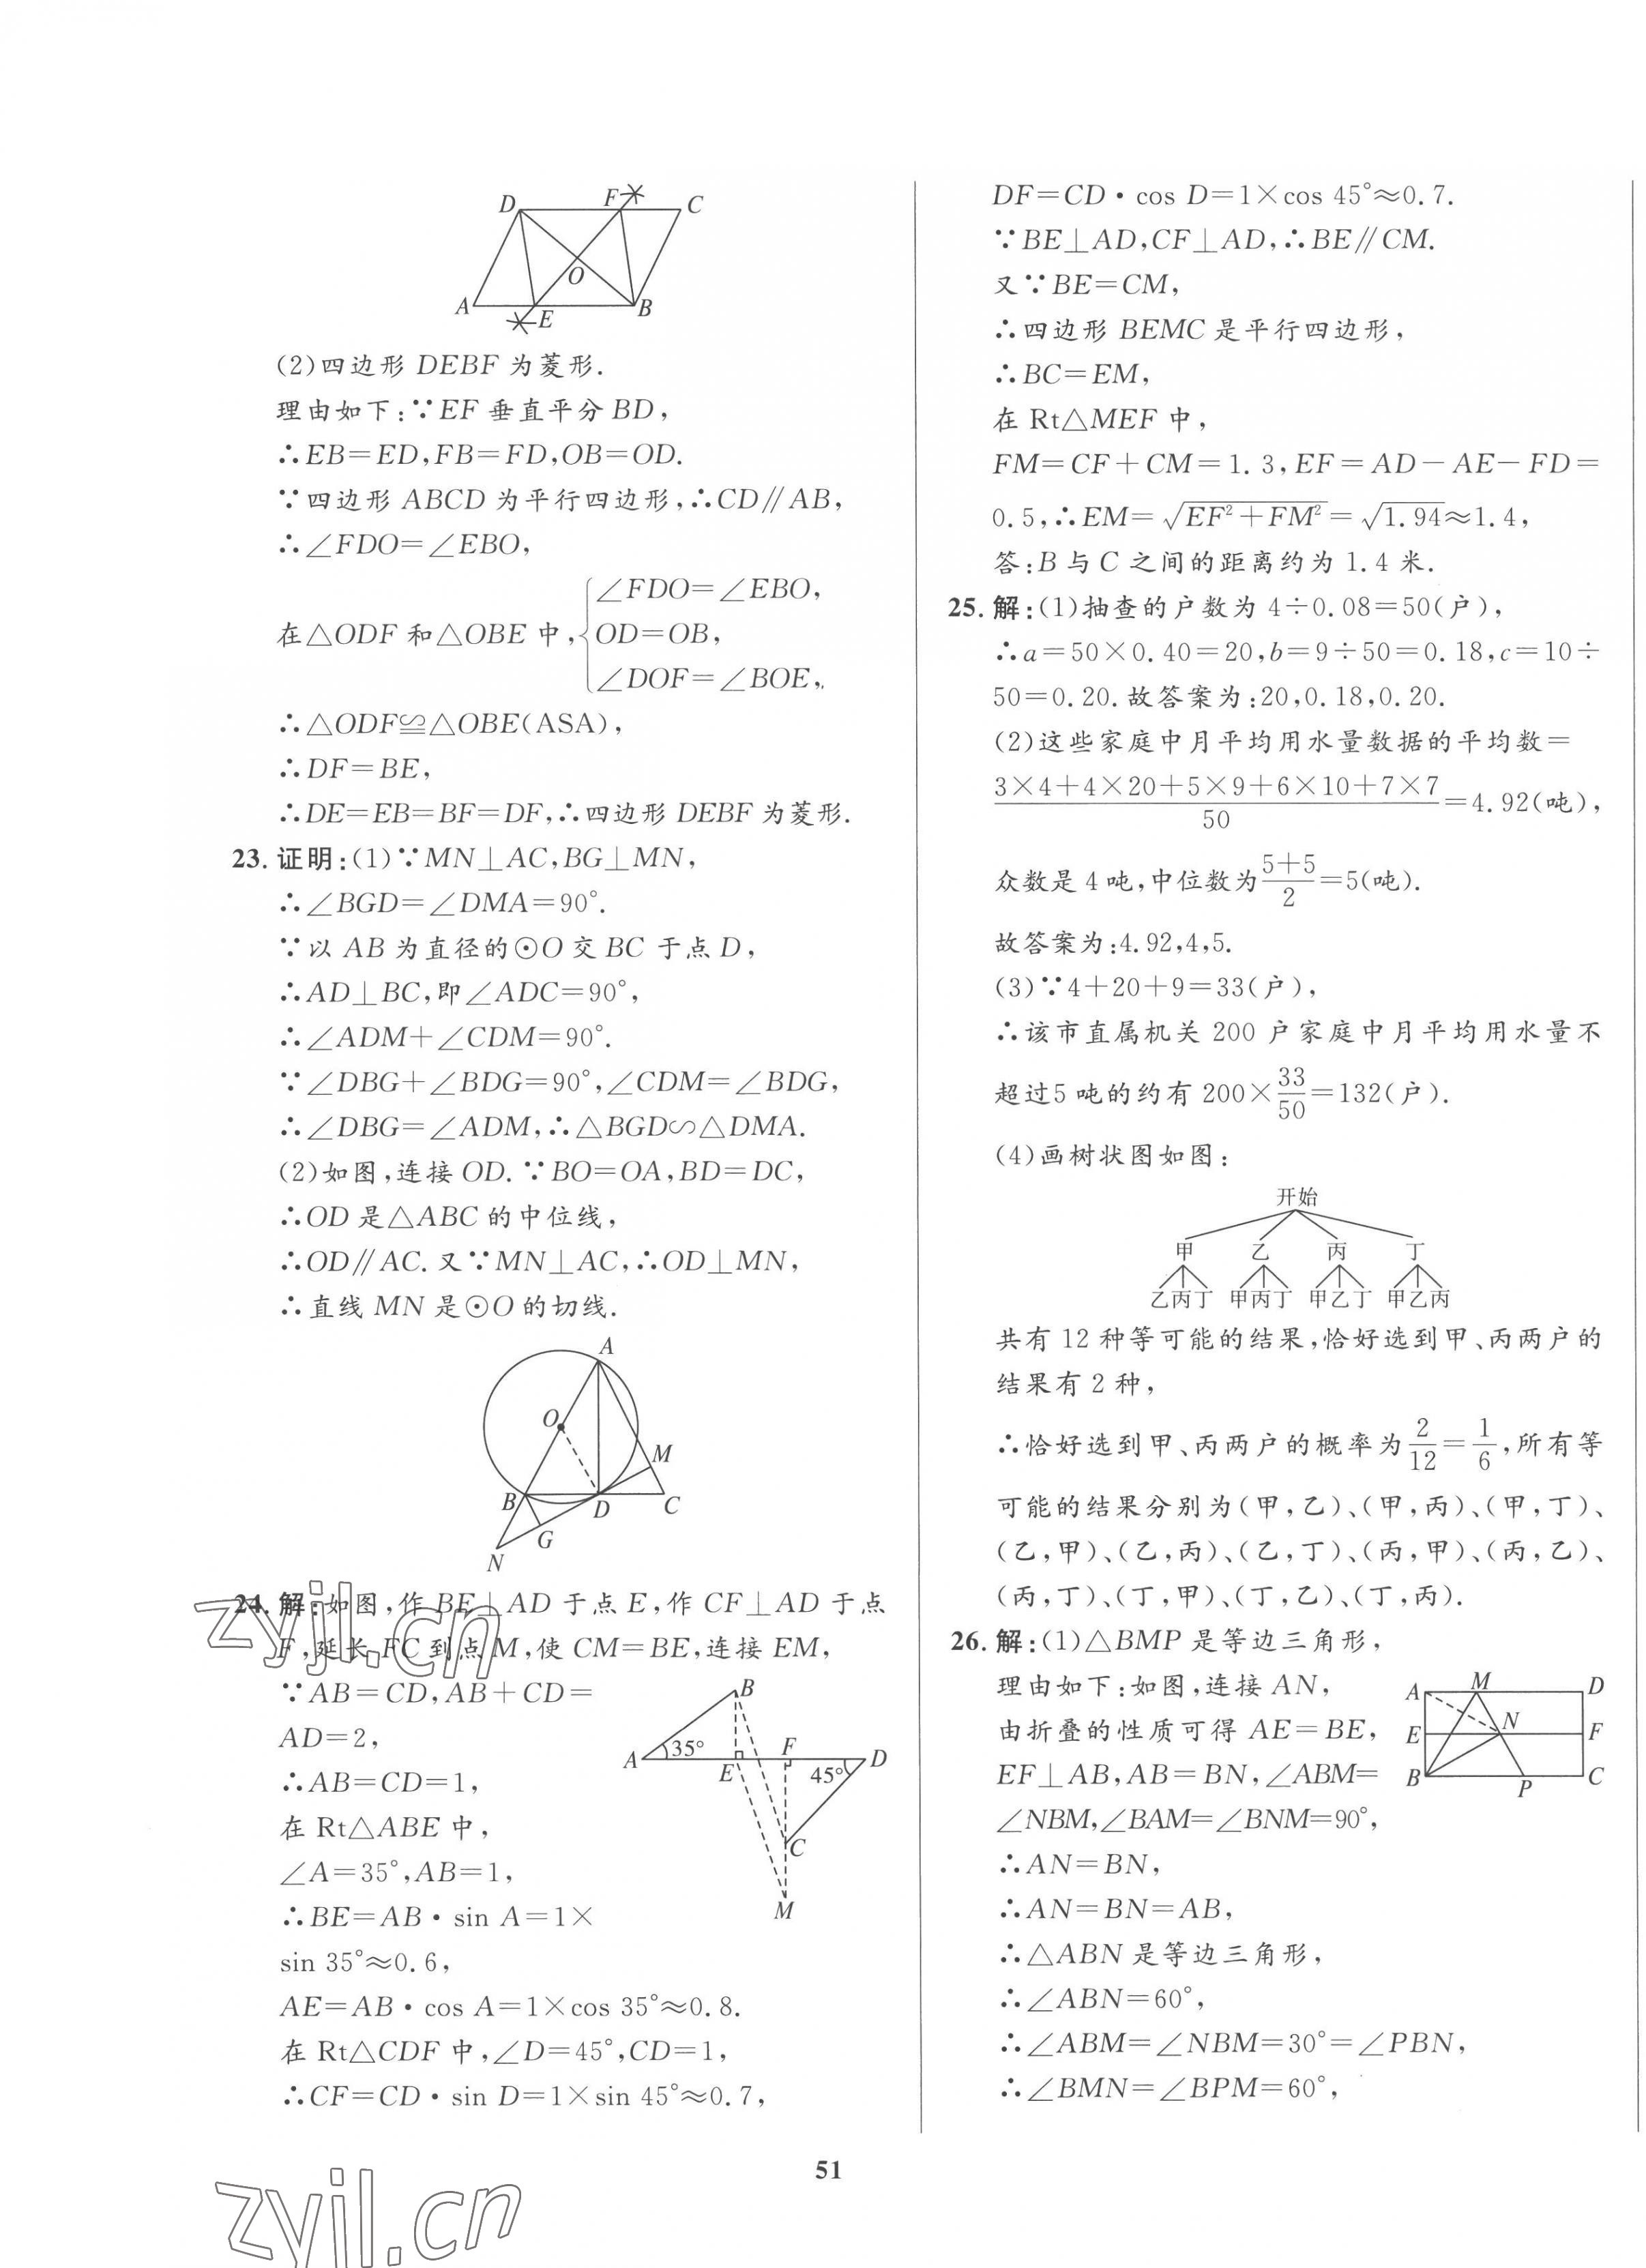 D
F
C
O
A
E
B
(2)四边形 DEBF 为菱形.
理由如下:∵EF 垂直平分 BD,
∴EB=ED,FB=FD,OB=OD.
∵四边形 ABCD 为平行四边形,∴CD∥AB,
∴∠FDO=∠EBO,
∠FDO=∠EBO,
在△ODF 和△OBE 中,{OD=OB,
∠DOF=∠BOE,
∴△ODF≌△OBE(ASA),
∴DF=BE,
∴DE=EB=BF=DF,∴四边形 DEBF 为菱形.
23. 证明:(1)∵MN⊥AC,BG⊥MN,
∴∠BGD=∠DMA=90°.
∵以 AB 为直径的⊙O 交 BC 于点 D,
∴AD⊥BC,即∠ADC=90°,
∴∠ADM+∠CDM=90°.
∵∠DBG+∠BDG=90°,∠CDM=∠BDG,
∴∠DBG=∠ADM,∴△BGD∽△DMA.
(2)如图,连接 OD.∵BO=OA,BD=DC,
∴OD 是△ABC 的中位线,
∴OD∥AC.又∵MN⊥AC,∴OD⊥MN,
∴直线 MN 是⊙O 的切线.
A
O
M
B
D
C
G
N
24. 解:如图,作 BE⊥AD 于点 E,作 CF⊥AD 于点
F,延长 FC 到点 M,使 CM=BE,连接 EM,
∵AB=CD,AB+CD=
AD=2,
∴AB=CD=1,
在 Rt△ABE 中,
∠A=35°,AB=1,
∴BE=AB·sin A=1×
sin 35°≈0.6,
B
A
35°
F
D
E
45°
C
M
AE=AB·cos A=1×cos 35°≈0.8.
在 Rt△CDF 中,∠D=45°,CD=1,
∴CF=CD·sin D=1×sin 45°≈0.7,
DF=CD·cos D=1×cos 45°≈0.7.
∵BE⊥AD,CF⊥AD,∴BE∥CM.
又∵BE=CM,
∴四边形 BEMC 是平行四边形,
∴BC=EM,
在 Rt△MEF 中,
FM=CF+CM=1.3,EF=AD-AE-FD=
0.5,∴EM=√(EF²+FM²)=√1.94≈1.4,
答:B 与 C 之间的距离约为 1.4 米.
25. 解:(1)抽查的户数为 4÷0.08=50(户),
∴a=50×0.40=20,b=9÷50=0.18,c=10÷
50=0.20.故答案为:20,0.18,0.20.
(2)这些家庭中月平均用水量数据的平均数=
3×4+4×20+5×9+6×10+7×7/50=4.92(吨),
众数是 4 吨,中位数为5+5/2=5(吨).
故答案为:4.92,4,5.
(3)∵4+20+9=33(户),
∴该市直属机关 200 户家庭中月平均用水量不
超过5 吨的约有 200×33/50=132(户).
(4)画树状图如图:
开始
甲 乙 丙 丁
乙丙丁 甲丙丁 甲乙丁 甲乙丙
共有 12 种等可能的结果,恰好选到甲、丙两户的
结果有 2 种,
∴恰好选到甲、丙两户的概率为2/12=1/6,所有等
可能的结果分别为(甲,乙)、(甲,丙)、(甲,丁)、
(乙,甲)、(乙,丙)、(乙,丁)、(丙,甲)、(丙,乙)、
(丙,丁)、(丁,甲)、(丁,乙)、(丁,丙).
26. 解:(1)△BMP 是等边三角形,
理由如下:如图,连接 AN,
由折叠的性质可得 AE=BE,
EF⊥AB,AB=BN,∠ABM=
∠NBM,∠BAM=∠BNM=90°,
A
M
D
E
N
F
B
P
C
∴AN=BN,
∴AN=BN=AB,
∴△ABN 是等边三角形,
∴∠ABN=60°,
∴∠ABM=∠NBM=30°=∠PBN,
∴∠BMN=∠BPM=60°,
51
zyjl.cn
zyjl.cn